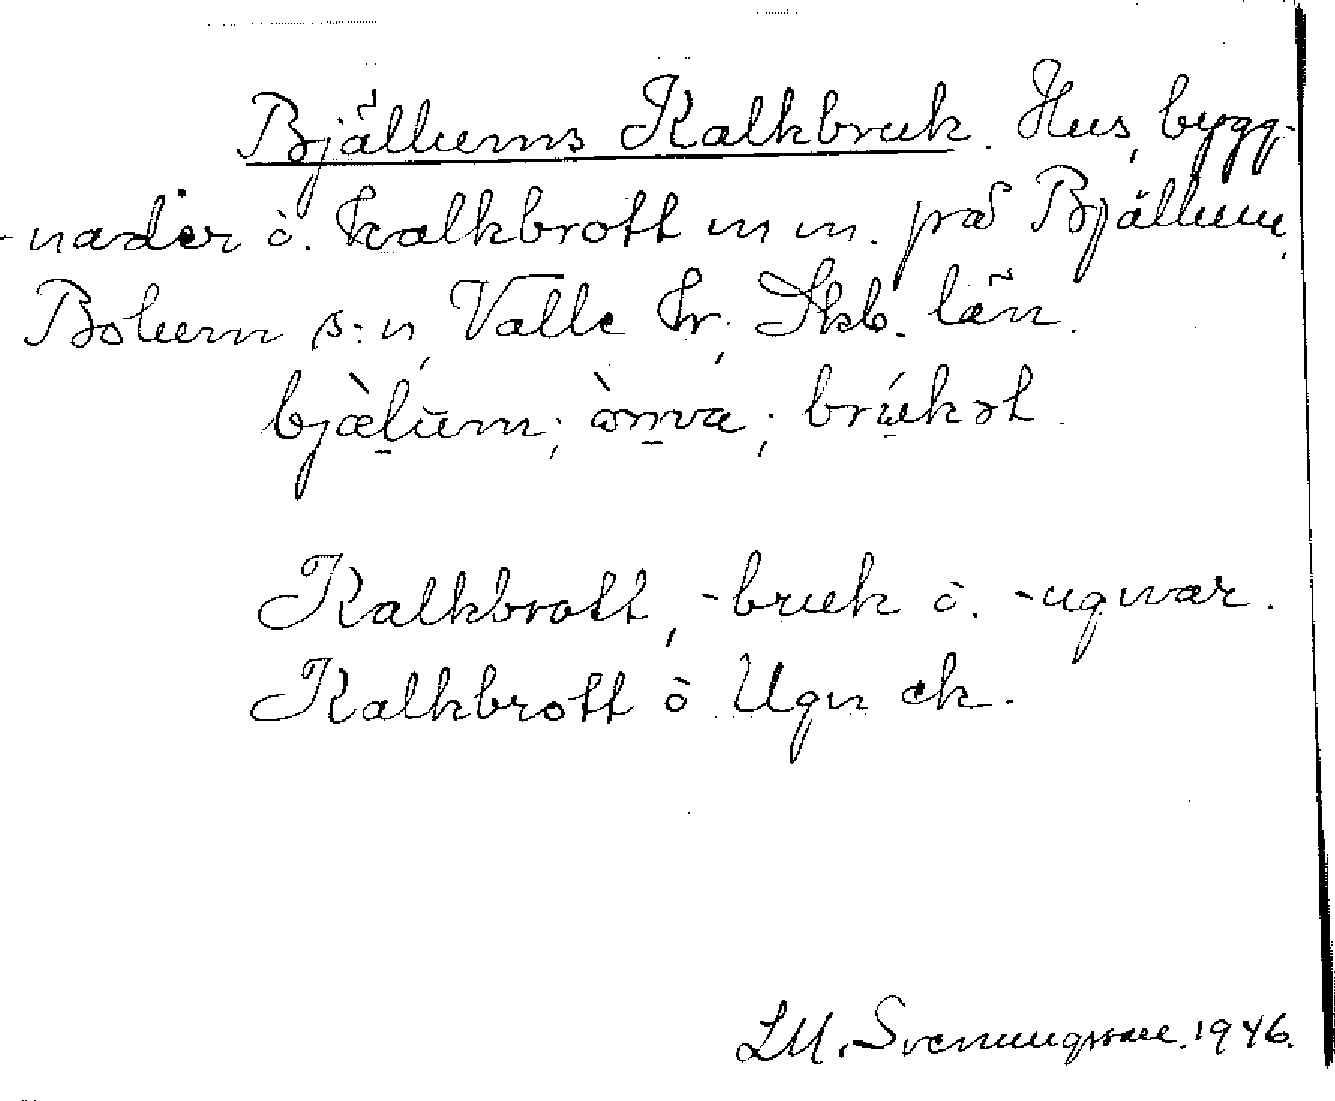 Bjällums Kalkbruk. Hus, bygg-
-nader o. kalkbrott m m. på Bjällum,
Bolum s:n, Valle hr, Skb. län.
bjæ̀lum; òmva; brúkət.
Kalkbrott, -bruk o. -ugnar.
Kalkbrott o Ugn ek.
LM. Svenungsson. 1946.